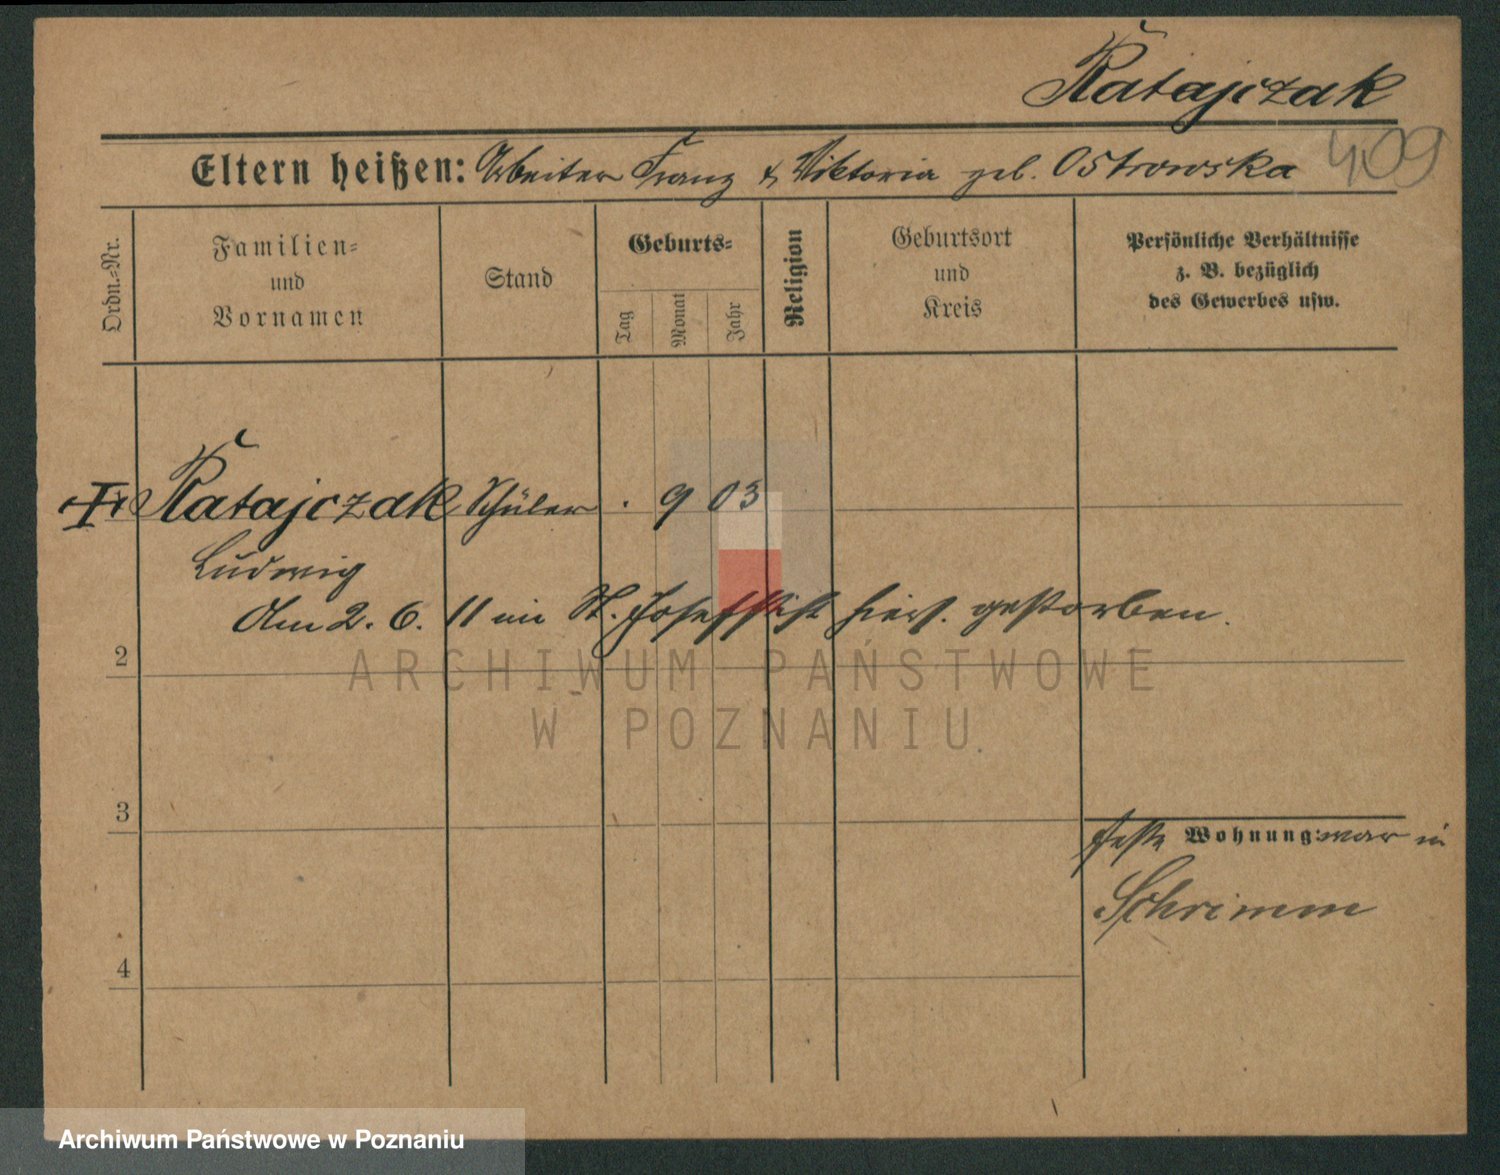 Ratajczak
409
Eltern heißen: Arbeiter Franz & Viktoria geb. Ostrowska
Ordn.-Nr.
Familien- und Vornamen
Stand
Geburts-
Tag
Monat
Jahr
Religion
Geburtsort und Kreis
Persönliche Verhältnisse z. B. bezüglich des Gewerbes usw.
Ratajczak Schüler . 9 03
Ludwig
Am 2. 6. 11 im St. Josefstift hiers. gestorben.
2
3
feste Wohnung: war in
Schrimm
4
ARCHIWUM PAŃSTWOWE
W POZNANIU
Archiwum Państwowe w Poznaniu